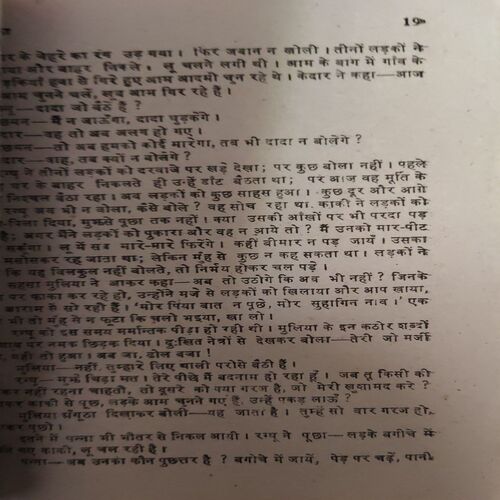 19
के चेहरे का रंग उड़ गया । फिर जबान न खोली । तीनों लड़कों ने
और बाहर निकले । लू चलने लगी थी । आम के बाग में गाँव के
हवा से गिरे हुए आम चुन रहे थे । केदार ने कहा—आज
आम चुनने चलें, खूब आम गिर रहे हैं ।
दादा जो बैठे हैं ?
मैं न जाऊँगा, दादा घुड़केंगे ।
वह तो अब अलग हो गए ।
तो अब हमको कोई मारेगा, तब भी दादा न बोलेंगे ?
वाह, तब क्यों न बोलेंगे ?
ने तीनों लड़कों को दरवाजे पर खड़े देखा; पर कुछ बोला नहीं । पहले
घर के बाहर निकलते ही उन्हें डाँट बैठता था; पर आज वह मूर्ति के
निश्चल बैठा रहा । अब लड़कों को कुछ साहस हुआ । कुछ दूर और आगे
रग्घू अब भी न बोला, कैसे बोले ? वह सोच रहा था. काकी ने लड़कों को
पिला दिया, मुझसे पूछा तक नहीं । क्या उसकी आँखों पर भी परदा पड़
है; अगर मैंने लड़कों को पुकारा और वह न आये तो ? मैं उनको मार-पीट
सकूँगा । लू में सब मारे-मारे फिरेंगे । कहीं बीमार न पड़ जायँ । उसका
मसोसकर रह जाता था; लेकिन मुँह से कुछ न कह सकता था । लड़कों ने
कि यह बिलकुल नहीं बोलते, तो निर्भय होकर चल पड़े ।
सहसा मुलिया ने आकर कहा—अब तो उठोगे कि अब भी नहीं ? जिनके
पर फाका कर रहे हो, उन्होंने मजे से लड़कों को खिलाया और आप खाया,
आराम से सो रही हैं । 'मोर पिया बात न पूछे, मोर सुहागिन नाँव ।' एक
भी तो मुँह से न फूटा कि चलो भइया, खा लो ।
रग्घू को इस समय मर्मान्तक पीड़ा हो रही थी । मुलिया के इन कठोर शब्दों
घाव पर नमक छिड़क दिया । दुःखित नेत्रों से देखकर बोला—तेरी जो मर्जी
वही तो हुआ । अब जा, ढोल बजा !
मुलिया—नहीं, तुम्हारे लिए थाली परोसे बैठी हैं ।
रग्घू—मुझे चिढ़ा मत । तेरे पीछे मैं बदनाम हो रहा हूँ । जब तू किसी की
नहीं रहना चाहती, तो दूसरे को क्या गरज है, जो मेरी खुशामद करे ?
काकी से पूछ, लड़के आम चुनने गए हैं, उन्हें पकड़ लाऊँ ?
मुलिया अँगूठा दिखाकर बोली—यह जाता है । तुम्हें सौ बार गरज हो,
पूछो ।
इतने में पन्ना भी भीतर से निकल आयी । रग्घू ने पूछा—लड़के बगीचे में
गए काकी, लू चल रही है ।
पन्ना—अब उनका कौन पुछत्तर है ? बगीचे में जायँ, पेड़ पर चढ़ें, पानी